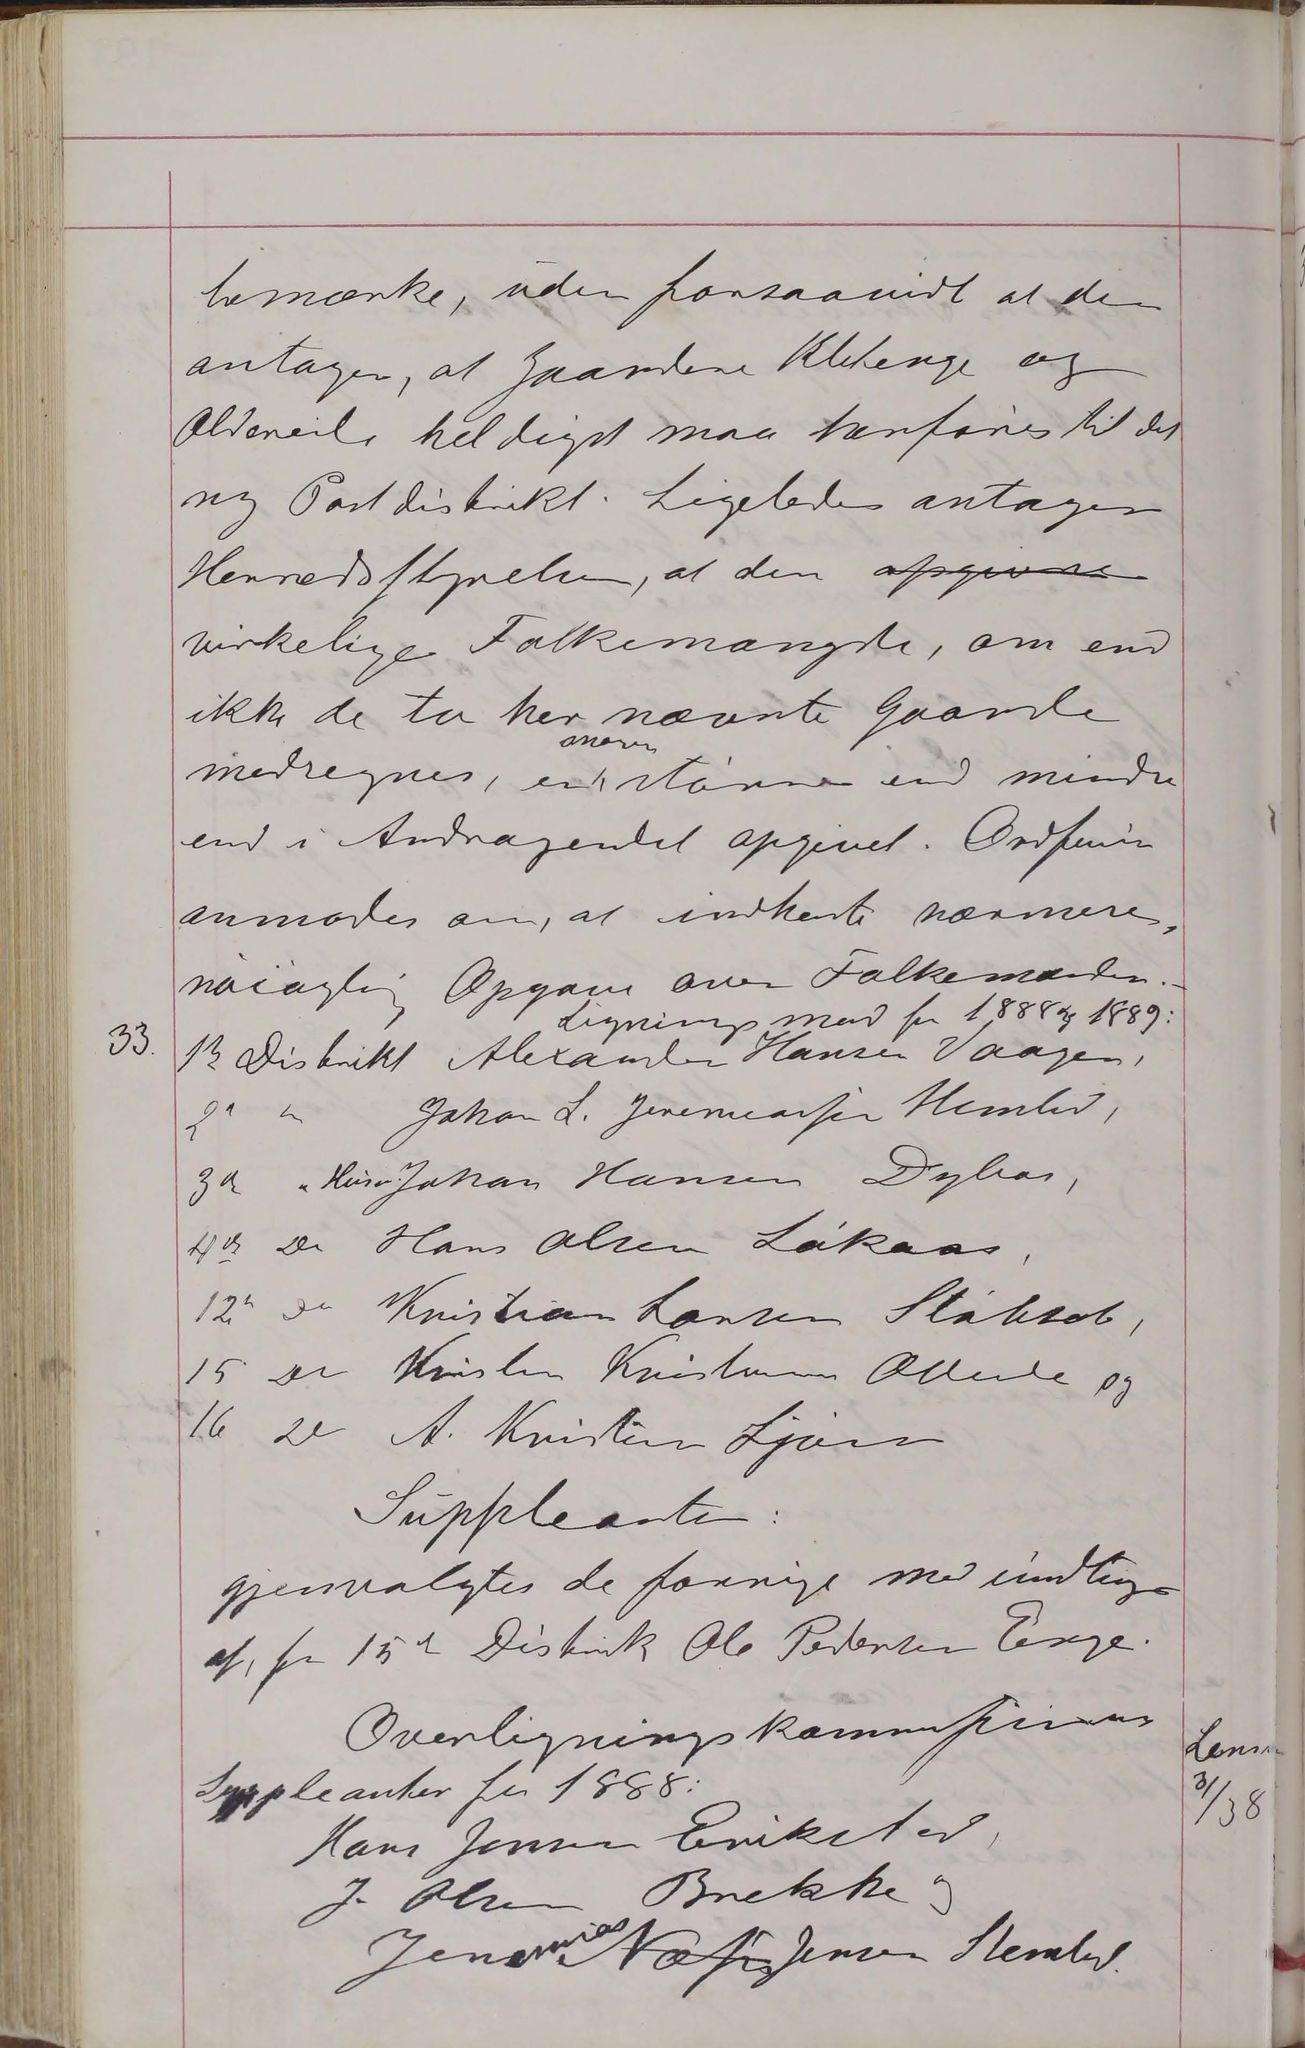 bemærke, uden forsaavidt at den
antager, at Gaardene Kletenge og
heldigst maa henføres til det
ny Postdistrikt. Ligeledes antager
Herredsstyrelsen, at den opgivne
virkelige Folkemængde, om end
ikke de to her nævnte Gaarde
medregnes, er snarere større end mindre
end i Andragendet opgivet. Ordføren
anmodes om, at indhente nærmere,
nøiagtig Opgave over Folkemænden.-
Ligningsmænd for 1888 og 1889:
33. 1ste Distrikt Alexander Hansen Vaagen,
2det " Johan L. Jeremiassen Hemlid,
3die " Johan Hansen Dybas,
4de Do Hans Olsen Løkaas,
12te Do Kristian Larsen
15 Do Kristen Kristensen og
16 Do A. Kristian
Suppleanter:
gjenvalgtes de forrige med undtag-
af, for 15de Distrikt Ole Pedersen Enge.
Overligningskommissionens
Suppleanter for 1888:
Lensm
31/38
Hans Jensen Erikstad,
J. Olsen Brekke og
Jeremias Jensen Stemlid.